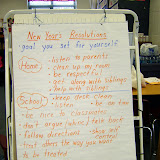 New Year's Resolutions
goal you set for yourself
Home - listen to parents
- clear up my room
- be respectful
- get along with siblings
- help with siblings
School - keep desk clean
- listen - be on time
- be nice to classmates
- don't argue (when) told
- follow directions
- treat others the way you want
to be treated